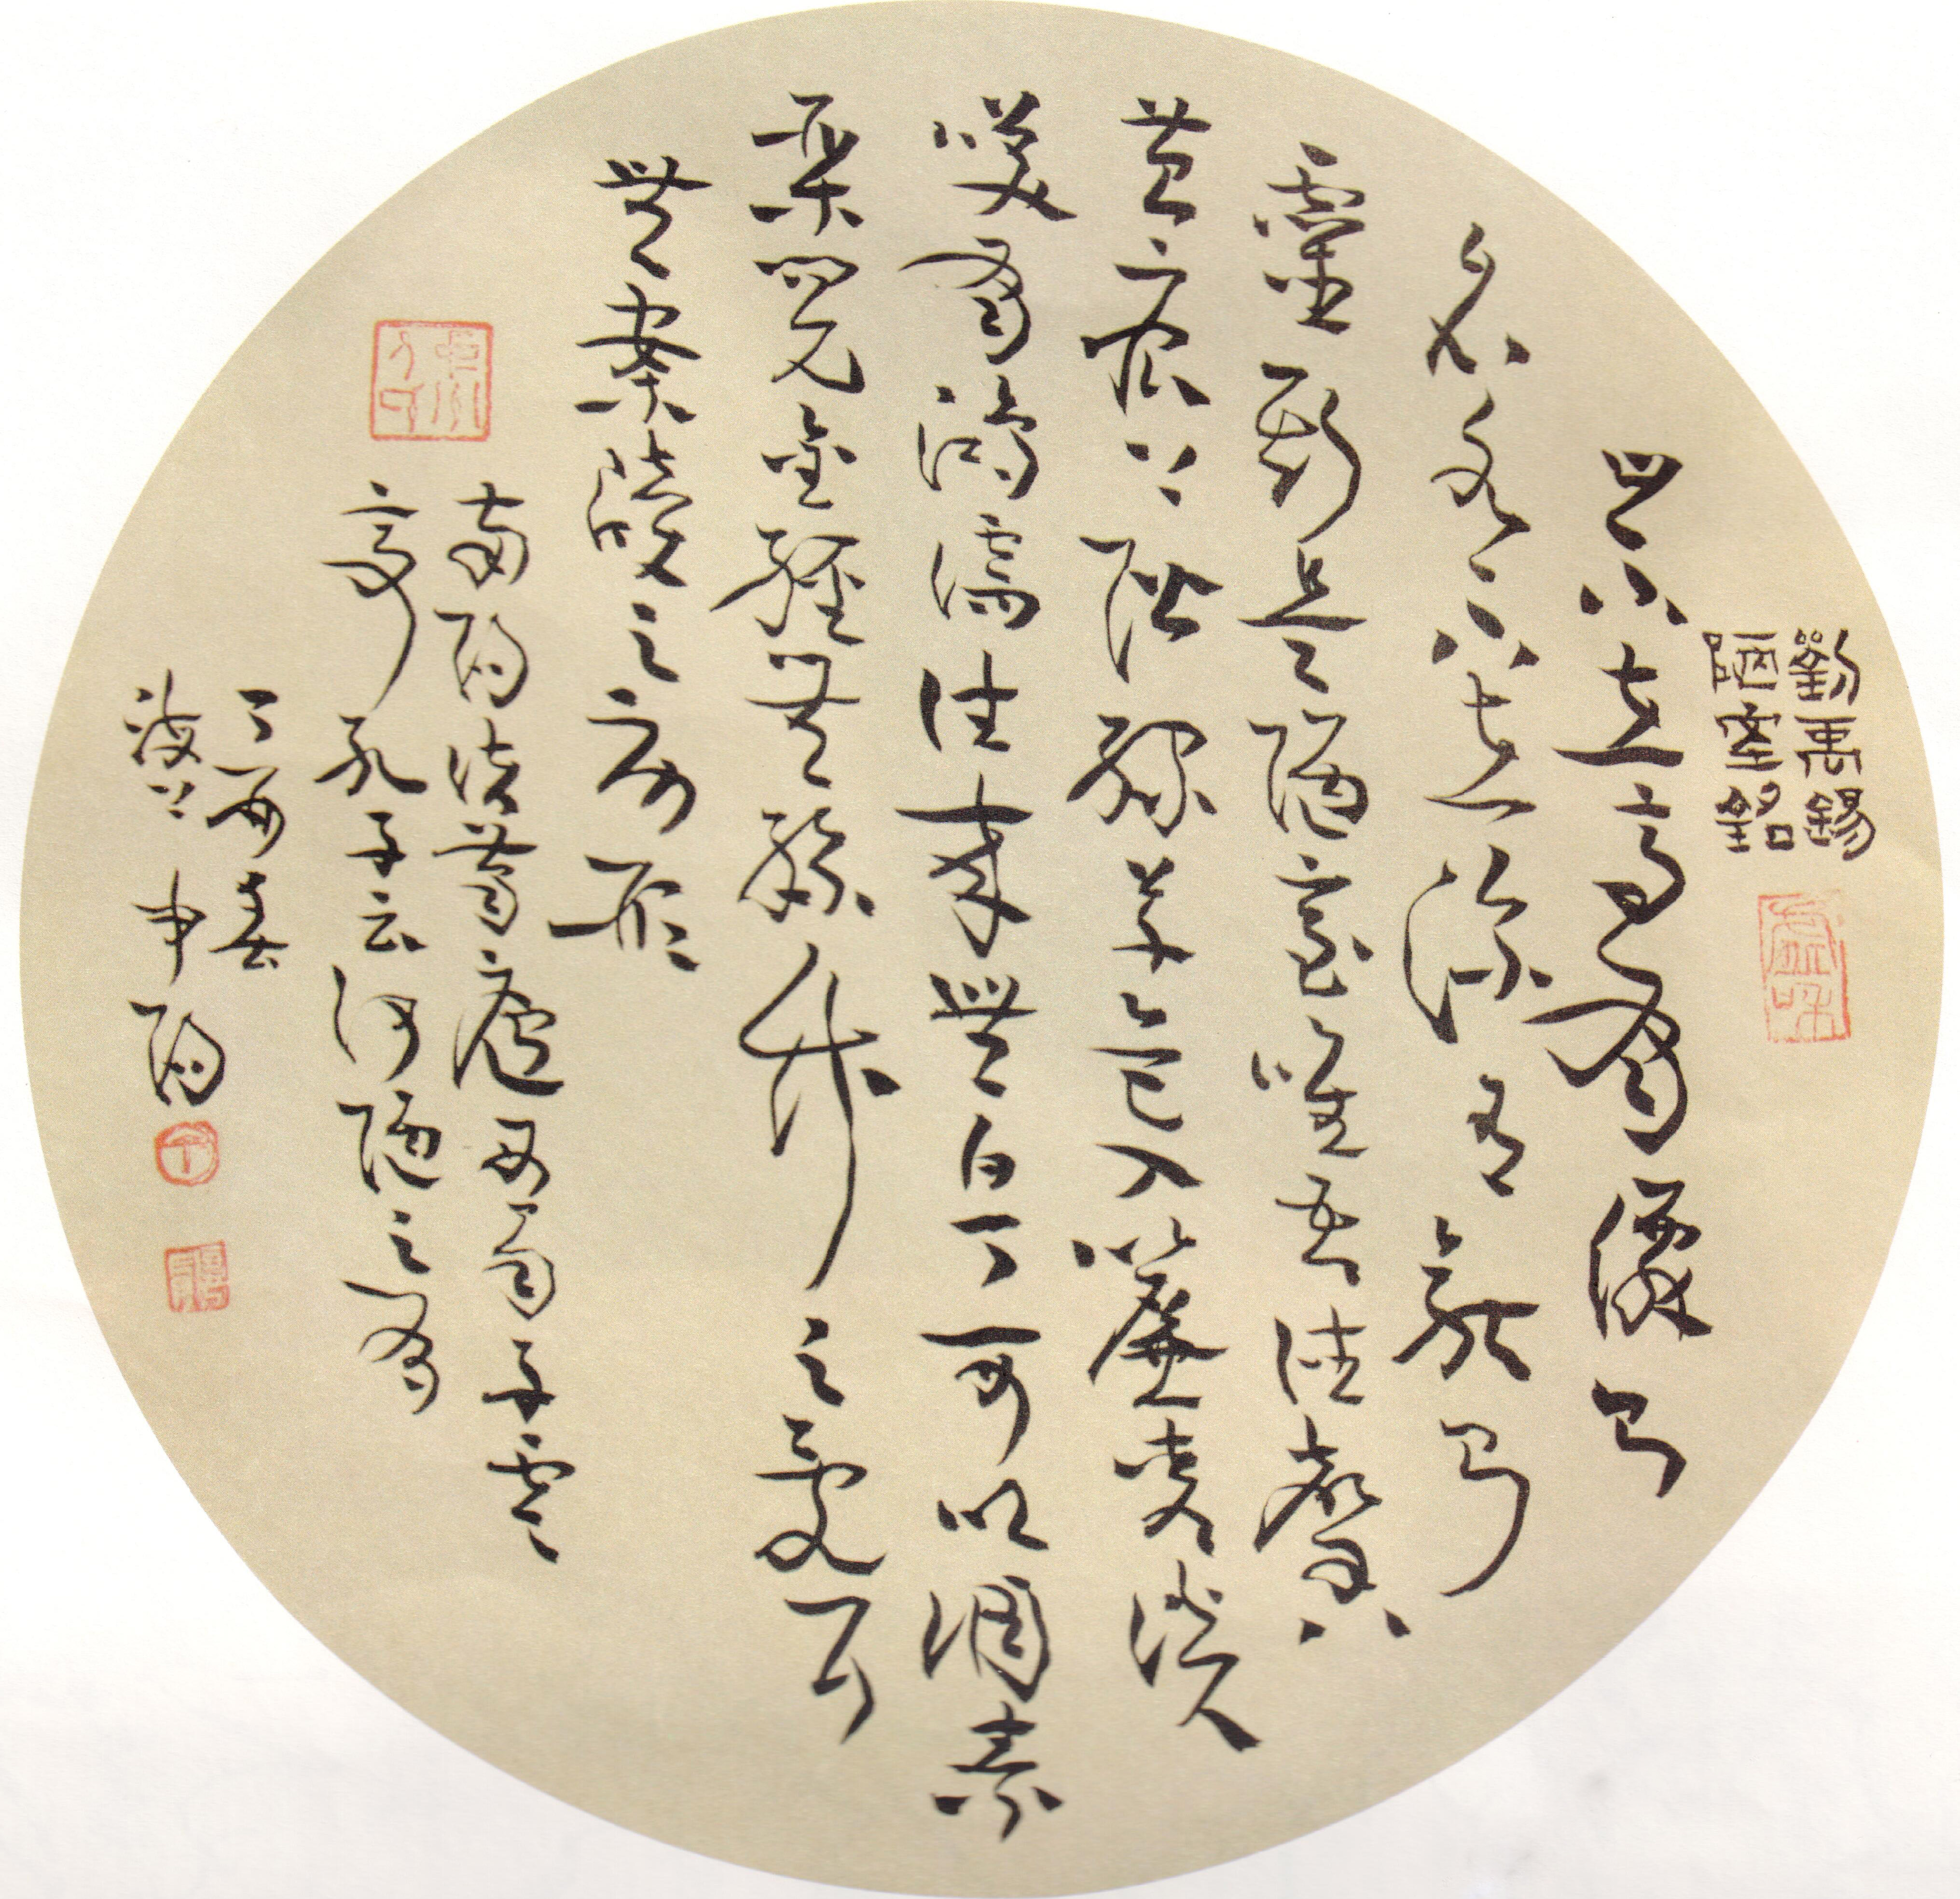 劉禹錫
陋室銘
山不在高有僊則
名水不在深有龍則
靈斯是陋室唯吾德馨
苔痕上階綠草色入簾青談
笑有鴻儒往來無白丁可以調素
琴閱金經無絲竹之亂耳
無案牘之勞形
南陽諸葛廬西蜀子雲
亭孔子云何陋之有
丁酉春
海上申陽